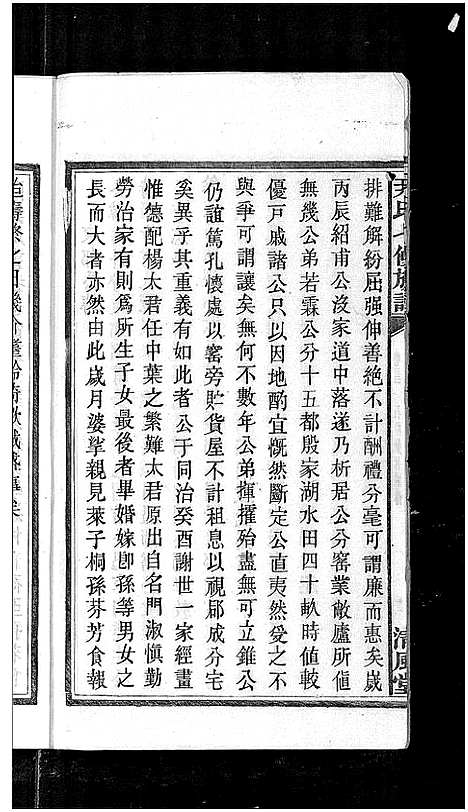 尹氏七修族譜
清風堂
排難解紛屈强伸善絶不計酬禮分毫可謂廉而惠矣歲
丙辰紹甫公没家道中落遂乃析居公分窰業敝廬所值
無幾公弟若霖公分十五都殷家湖水田四十畝時值較
優戸戚諸公只以因地酌宜慨然斷定公直夷然受之不
與爭可謂讓矣無何不數年公弟揮擢殆盡無可立錐公
仍誼篤孔懷處以窰旁貯貨屋不計租息以視郈成分宅
奚異乎其重義有如此者公于同治癸酉謝世一家經畫
惟德配楊太君任中葉之繁難太君原出自名門淑慎勤
勞治家有則爲所生子女最後者畢婚嫁卽孫等男女之
長而大者亦然由此歲月婆挲親見萊子桐孫芬芳食報